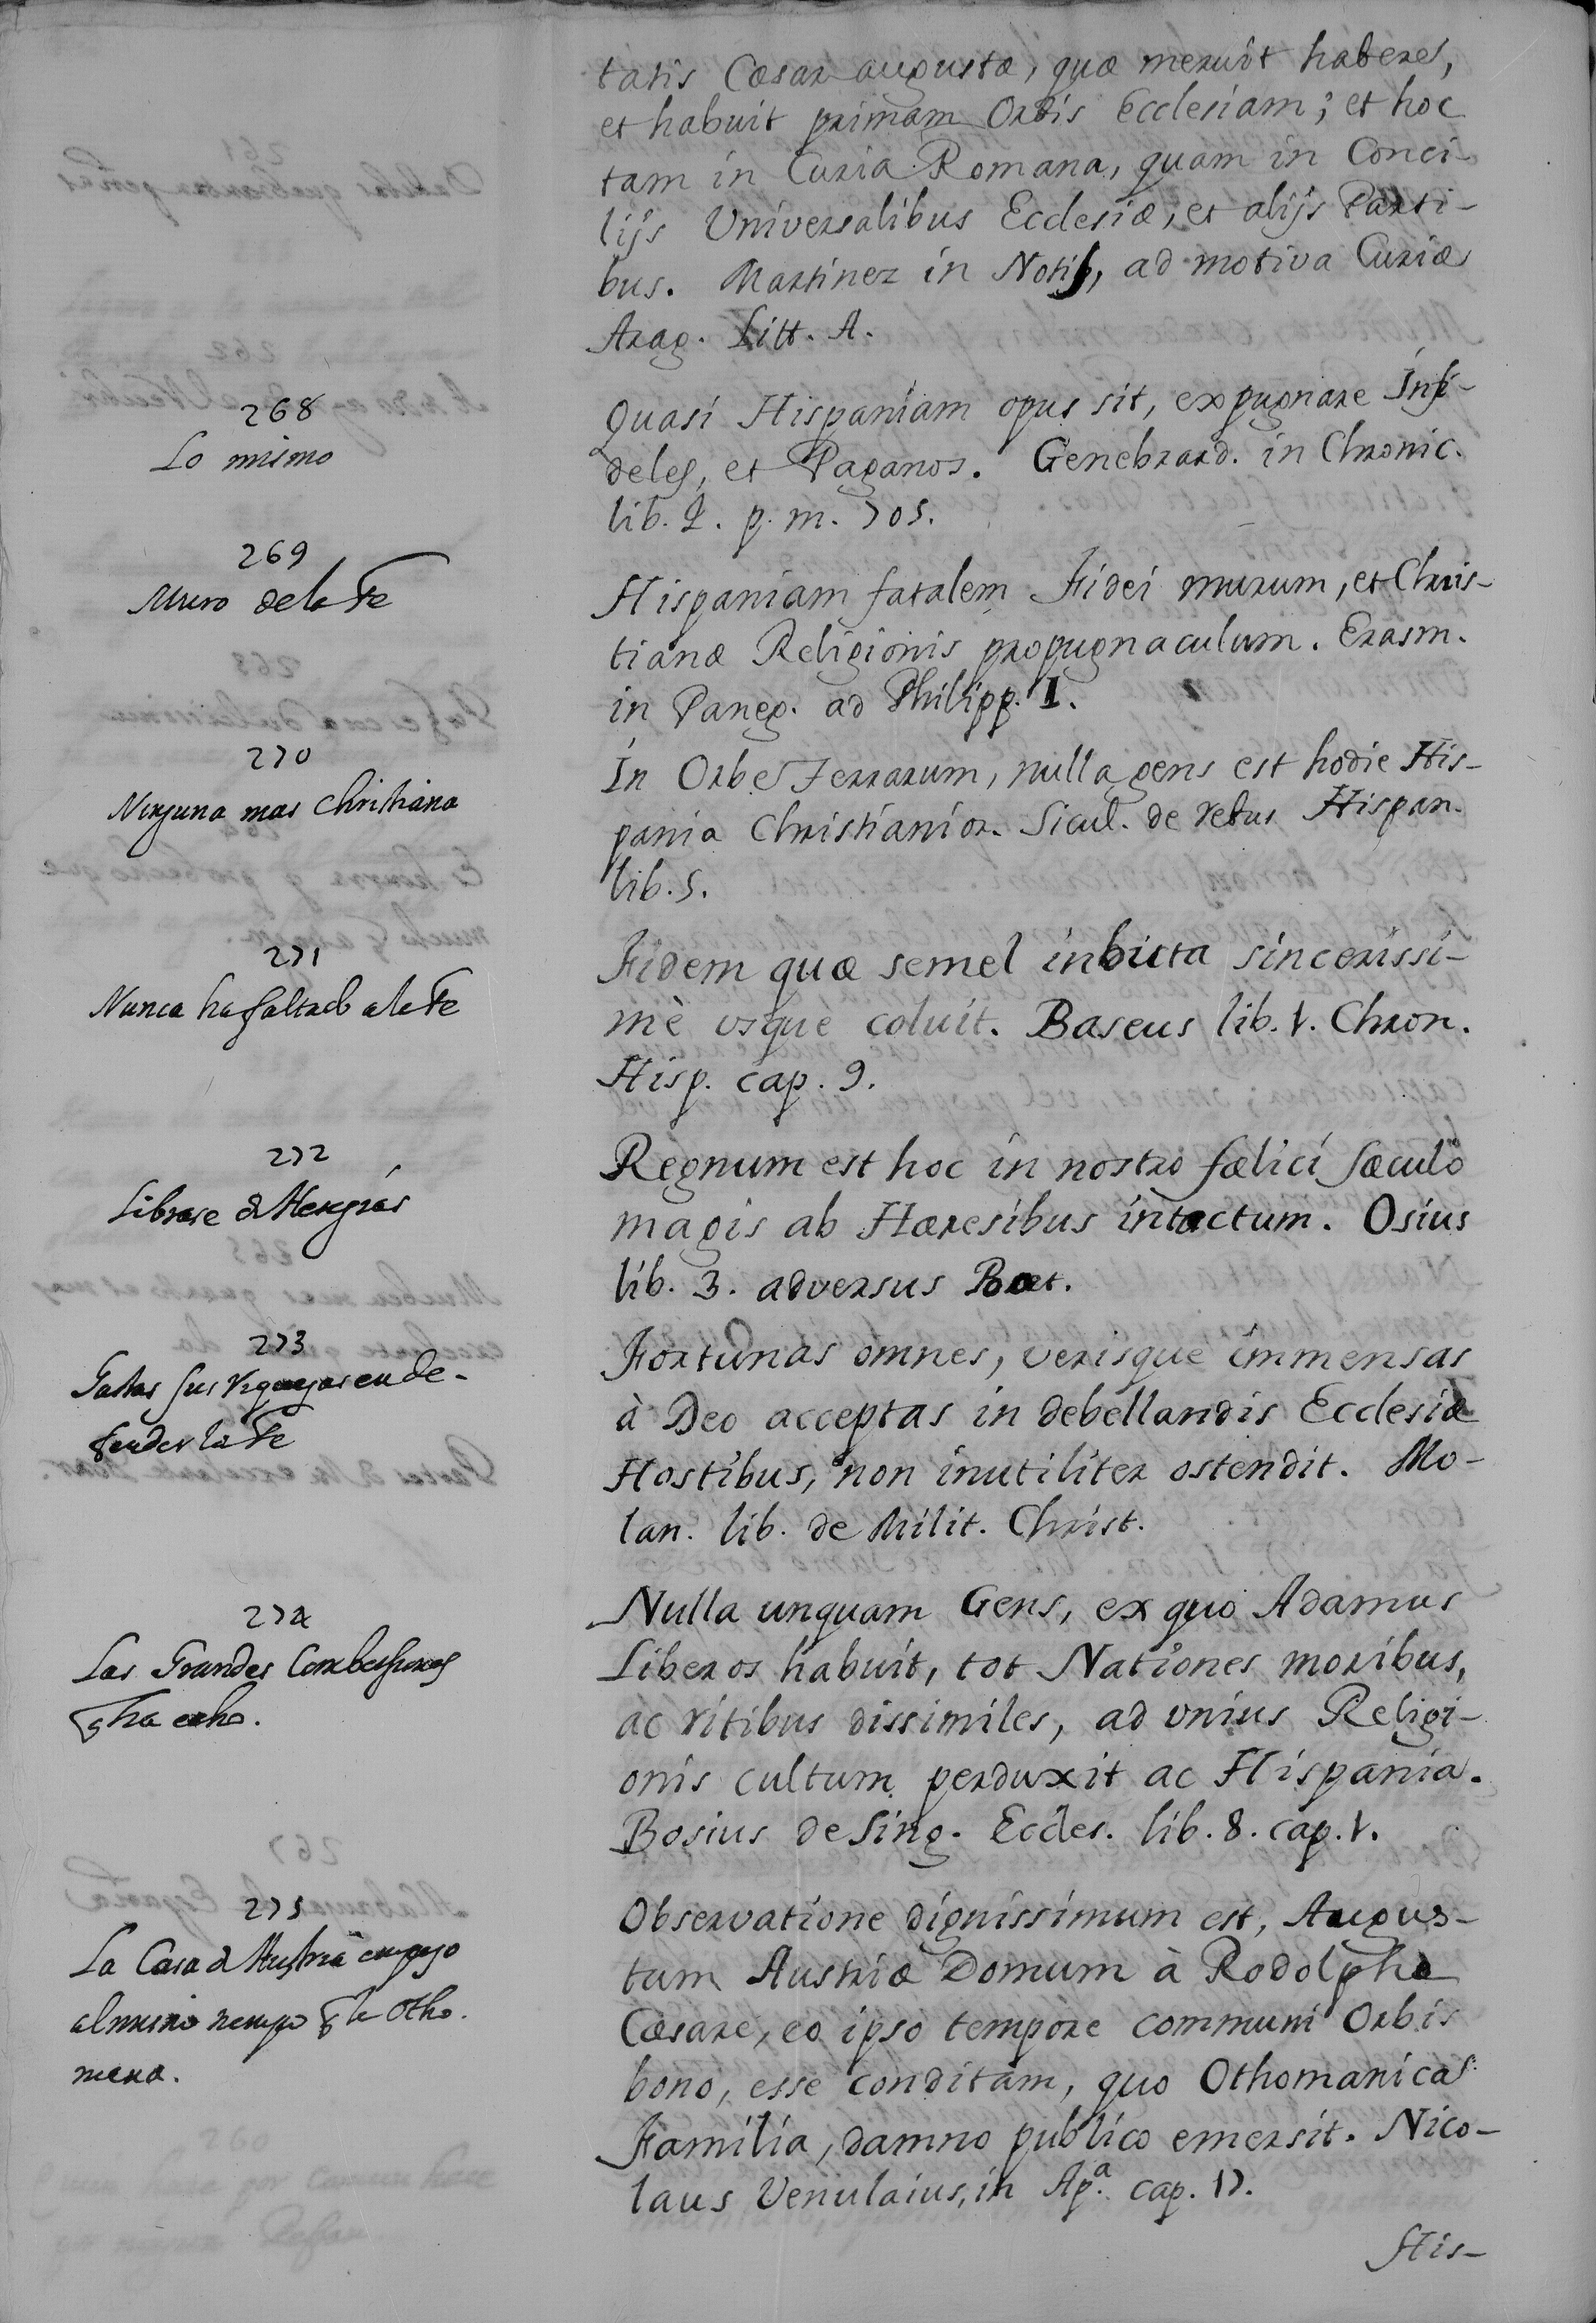 tatis Cæsar augustæ, quæ meruit habere,
et habuit primam Orbis Ecclesiam; et hoc
tam in Curia Romana, quam in Conci-
lijs Universalibus Ecclesiæ, et alijs Parti-
bus. Martinez in Notis, ad motiva Curiæ
Arag. Litt. A.
268
Lo mismo
Quasi Hispaniam opus sit, expugnare Infi-
deles, et Paganos. Genebrard. in Chronic.
lib. 2. p. m. 705.
269
Muro de la Fe
Hispaniam fatalem Fidei murum, et Chris-
tianæ Religionis propugnaculum. Erasm.
in Paneg. ad Philipp. I.
270
Ninguna mas Christiana
In Orbe Terrarum, nulla gens est hodie His-
pania Christianior. Sicul. de rebus Hispan.
lib. 5.
271
Nunca ha faltado a la Fe
Fidem quæ semel inbicta sincerissi-
mè usque coluit. Baseus lib. 1. Chron.
Hisp. cap. 9.
272
Librase de Heregias
Regnum est hoc in nostro fælici sæculo
magis ab Hæresibus intactum. Osius
lib. 3. adversus
273
Gasta sus riquezas en de-
fender la Fe
Fortunas omnes, verisque immensas
à Deo acceptas in debellandis Ecclesiæ
Hostibus, non inutiliter ostendit. Mo-
lan. lib. de Milit. Christ.
274
Las Grandes Conbersiones
q ha echo.
Nulla unquam Gens, ex quo Adamus
Liberos habuit, tot Nationes moribus,
ac ritibus dissimiles, ad unius Religi-
onis cultum perduxit ac Hispania.
Bosius de Sing. Eccles. lib. 8. cap. 1.
275
La Casa de Austria empezo
al mismo tiempo q la Otho-
mana.
Observatione dignissimum est, Augus-
tam Austriæ Domum à Rodolpho
Cæsare, eo ipso tempore communi Orbis
bono, esse conditam, quo Othomanica
Familia, damno publico emersit. Nico-
laus Venulaius, in Apª. cap. 17.
His-